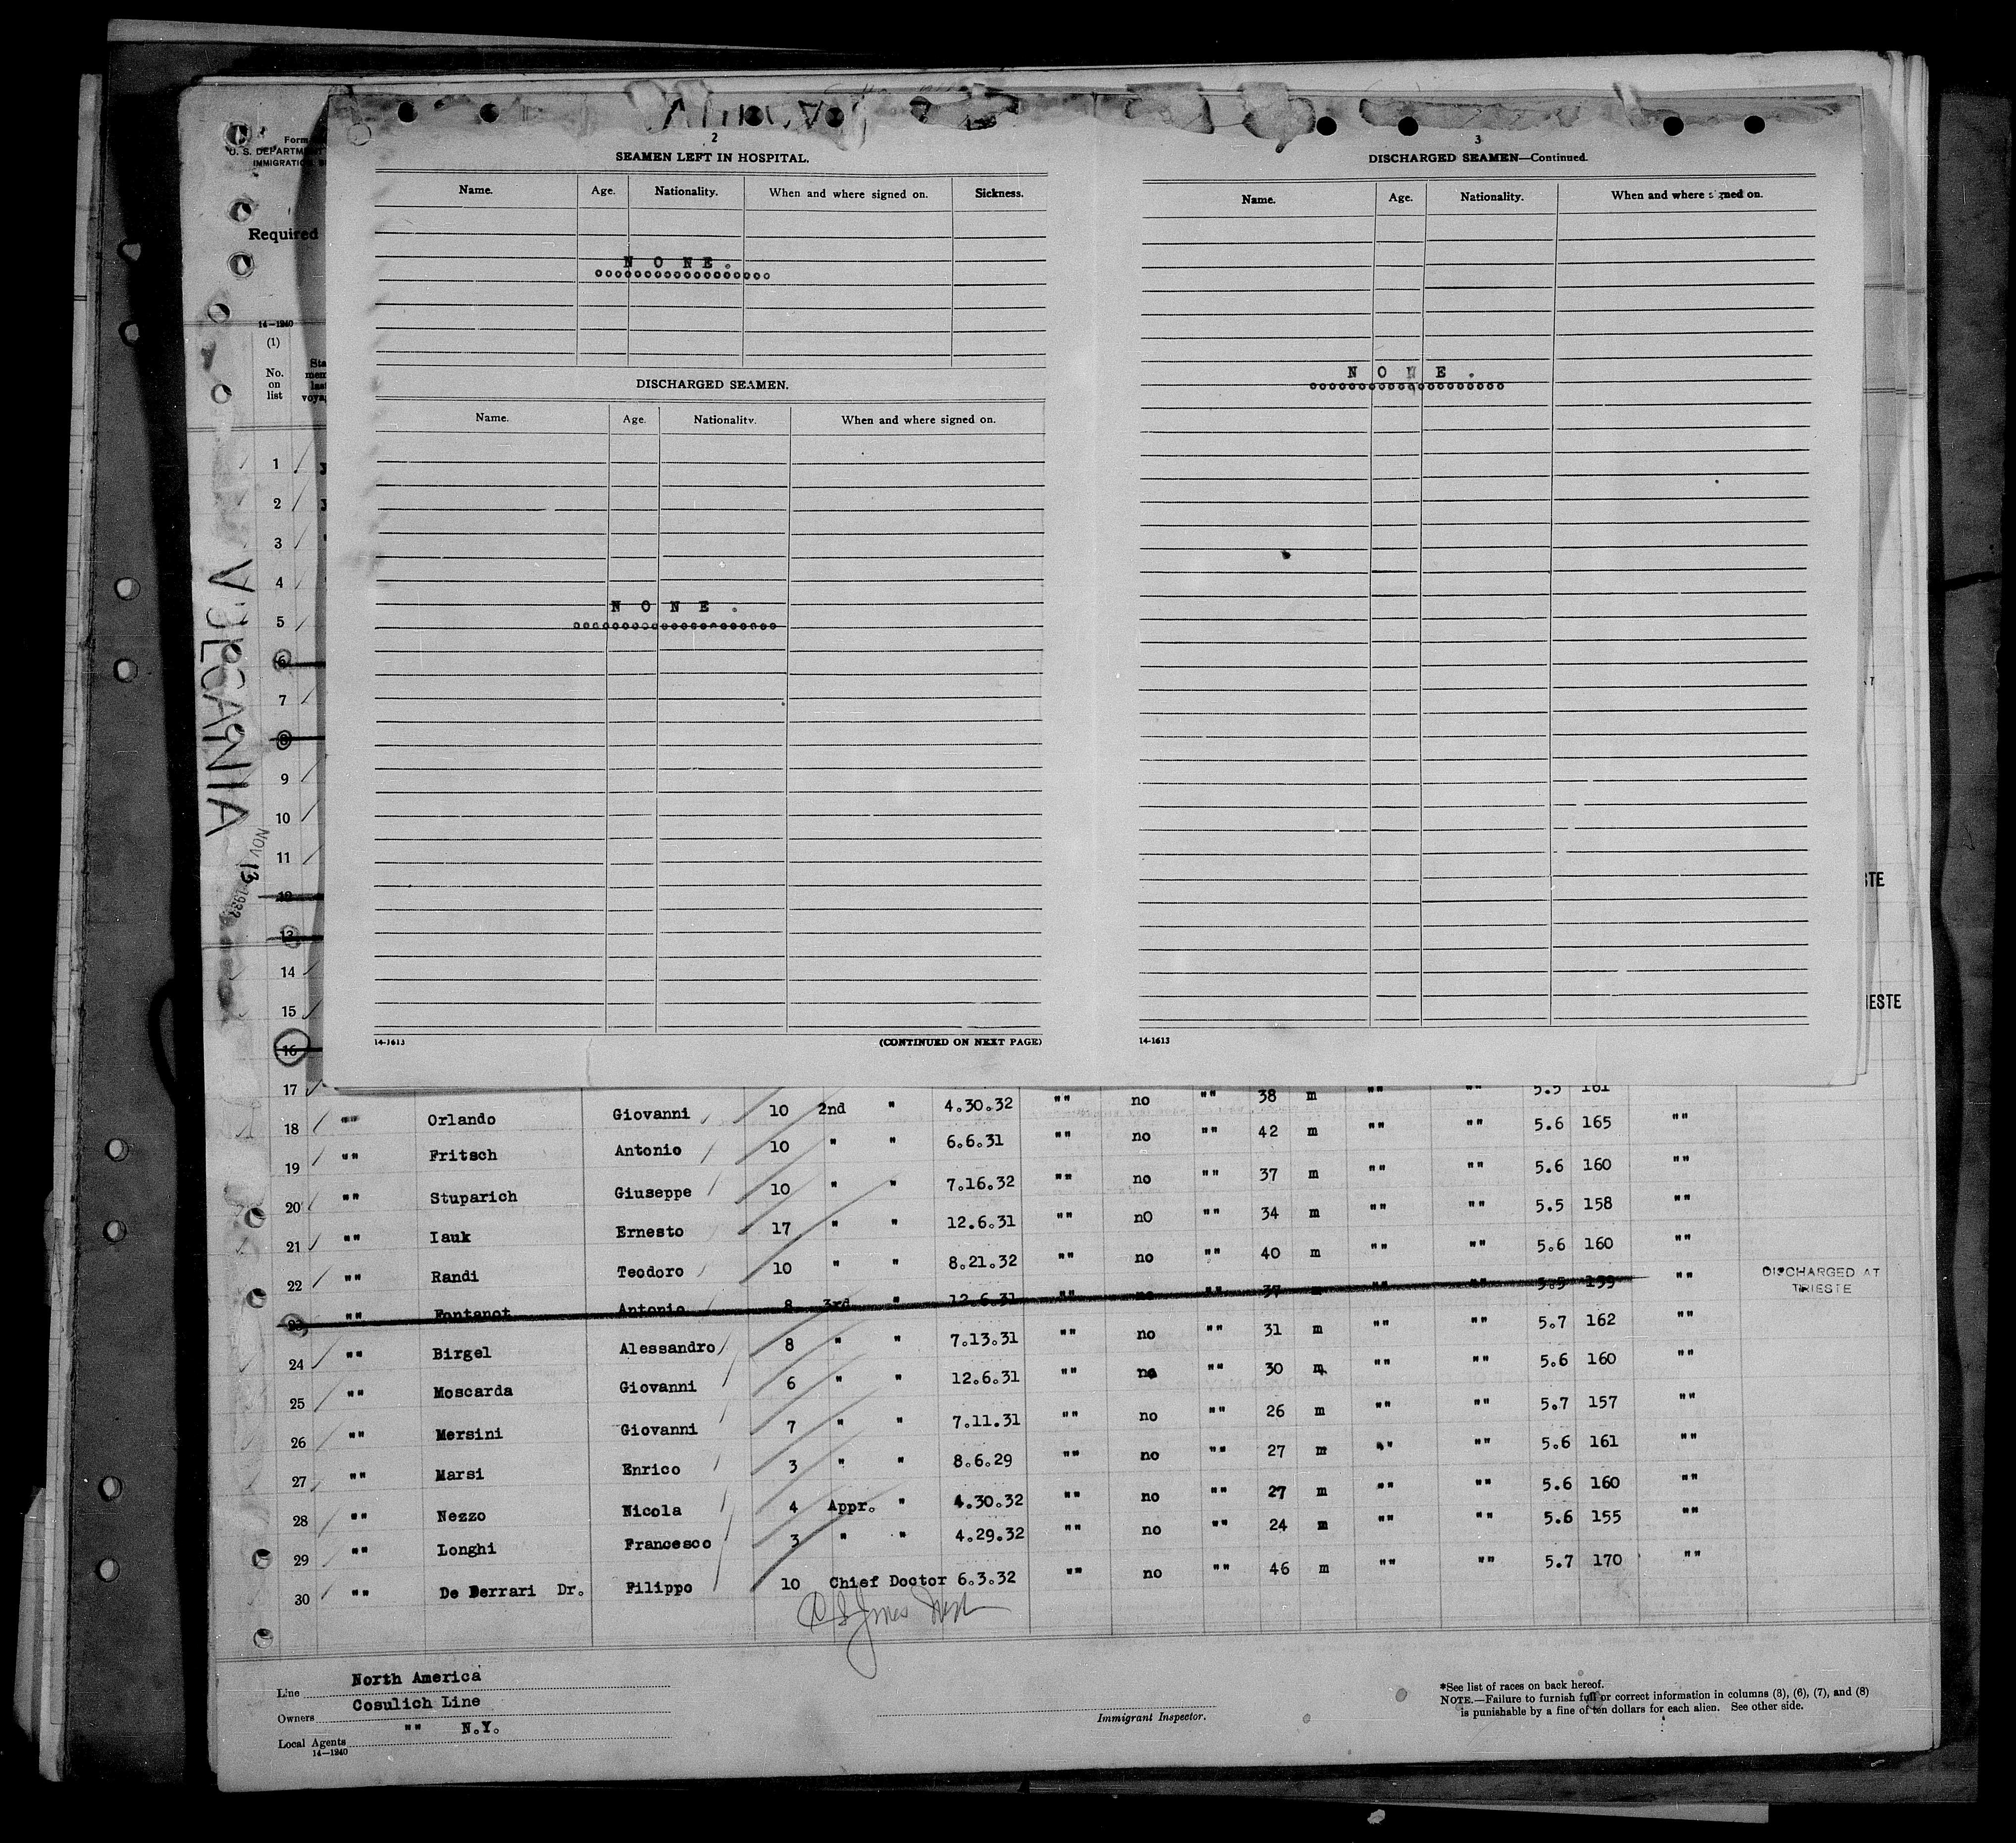 Form
U. S. DEPARTMENT
IMMIGRATION
Required
14—1240
(1)
No.
on
list
VULCANIA
NOV 13 1932
2
SEAMEN LEFT IN HOSPITAL.
Name. Age. Nationality. When and where signed on. Sickness.
NONE.
DISCHARGED SEAMEN.
Name. Age. Nationality. When and where signed on.
NONE.
14-1613 (CONTINUED ON NEXT PAGE)
3
DISCHARGED SEAMEN—Continued.
Name. Age. Nationality. When and where signed on.
NONE.
14-1613
1
2
3
4
5
6
7
8
9
10
11
12
13
14
15
16
17 38 m "" "" 5.5 161
18 "" Orlando Giovanni 10 2nd " 4.30.32 "" no "" 42 m "" "" 5.6 165 ""
19 "" Fritsch Antonio 10 " " 6.6.31 "" no "" 37 m "" "" 5.6 160 ""
20 "" Stuparich Giuseppe 10 " " 7.16.32 "" no "" 34 m "" "" 5.5 158 ""
21 "" Iauk Ernesto 17 " " 12.6.31 "" nO "" 40 m "" "" 5.6 160 ""
22 "" Randi Teodoro 10 " " 8.21.32 "" no "" 37 m "" "" 5.5 159 ""
23 "" Fontanot Antonio 8 3rd " 12.6.31 "" no DISCHARGED AT
TRIESTE
24 "" Birgel Alessandro 8 " " 7.13.31 "" no "" 31 m "" "" 5.7 162 ""
25 "" Moscarda Giovanni 6 " " 12.6.31 "" no "" 30 m "" "" 5.6 160 ""
26 "" Mersini Giovanni 7 " " 7.11.31 "" no "" 26 m "" "" 5.7 157 ""
27 "" Marsi Enrico 3 " " 8.6.29 "" no "" 27 m "" "" 5.6 161 ""
28 "" Nezzo Nicola 4 Appr. " 4.30.32 "" no "" 27 m "" "" 5.6 160 ""
29 "" Longhi Francesco 3 " " 4.29.32 "" no "" 24 m "" "" 5.6 155 ""
30 "" De Ferrari Dr. Filippo 10 Chief Doctor 6.3.32 "" no "" 46 m "" "" 5.7 170 ""
Line North America
Owners Cosulich Line
Local Agents "" N.Y.
14—1240
Immigrant Inspector.
*See list of races on back hereof.
NOTE.—Failure to furnish full or correct information in columns (3), (6), (7), and (8)
is punishable by a fine of ten dollars for each alien. See other side.